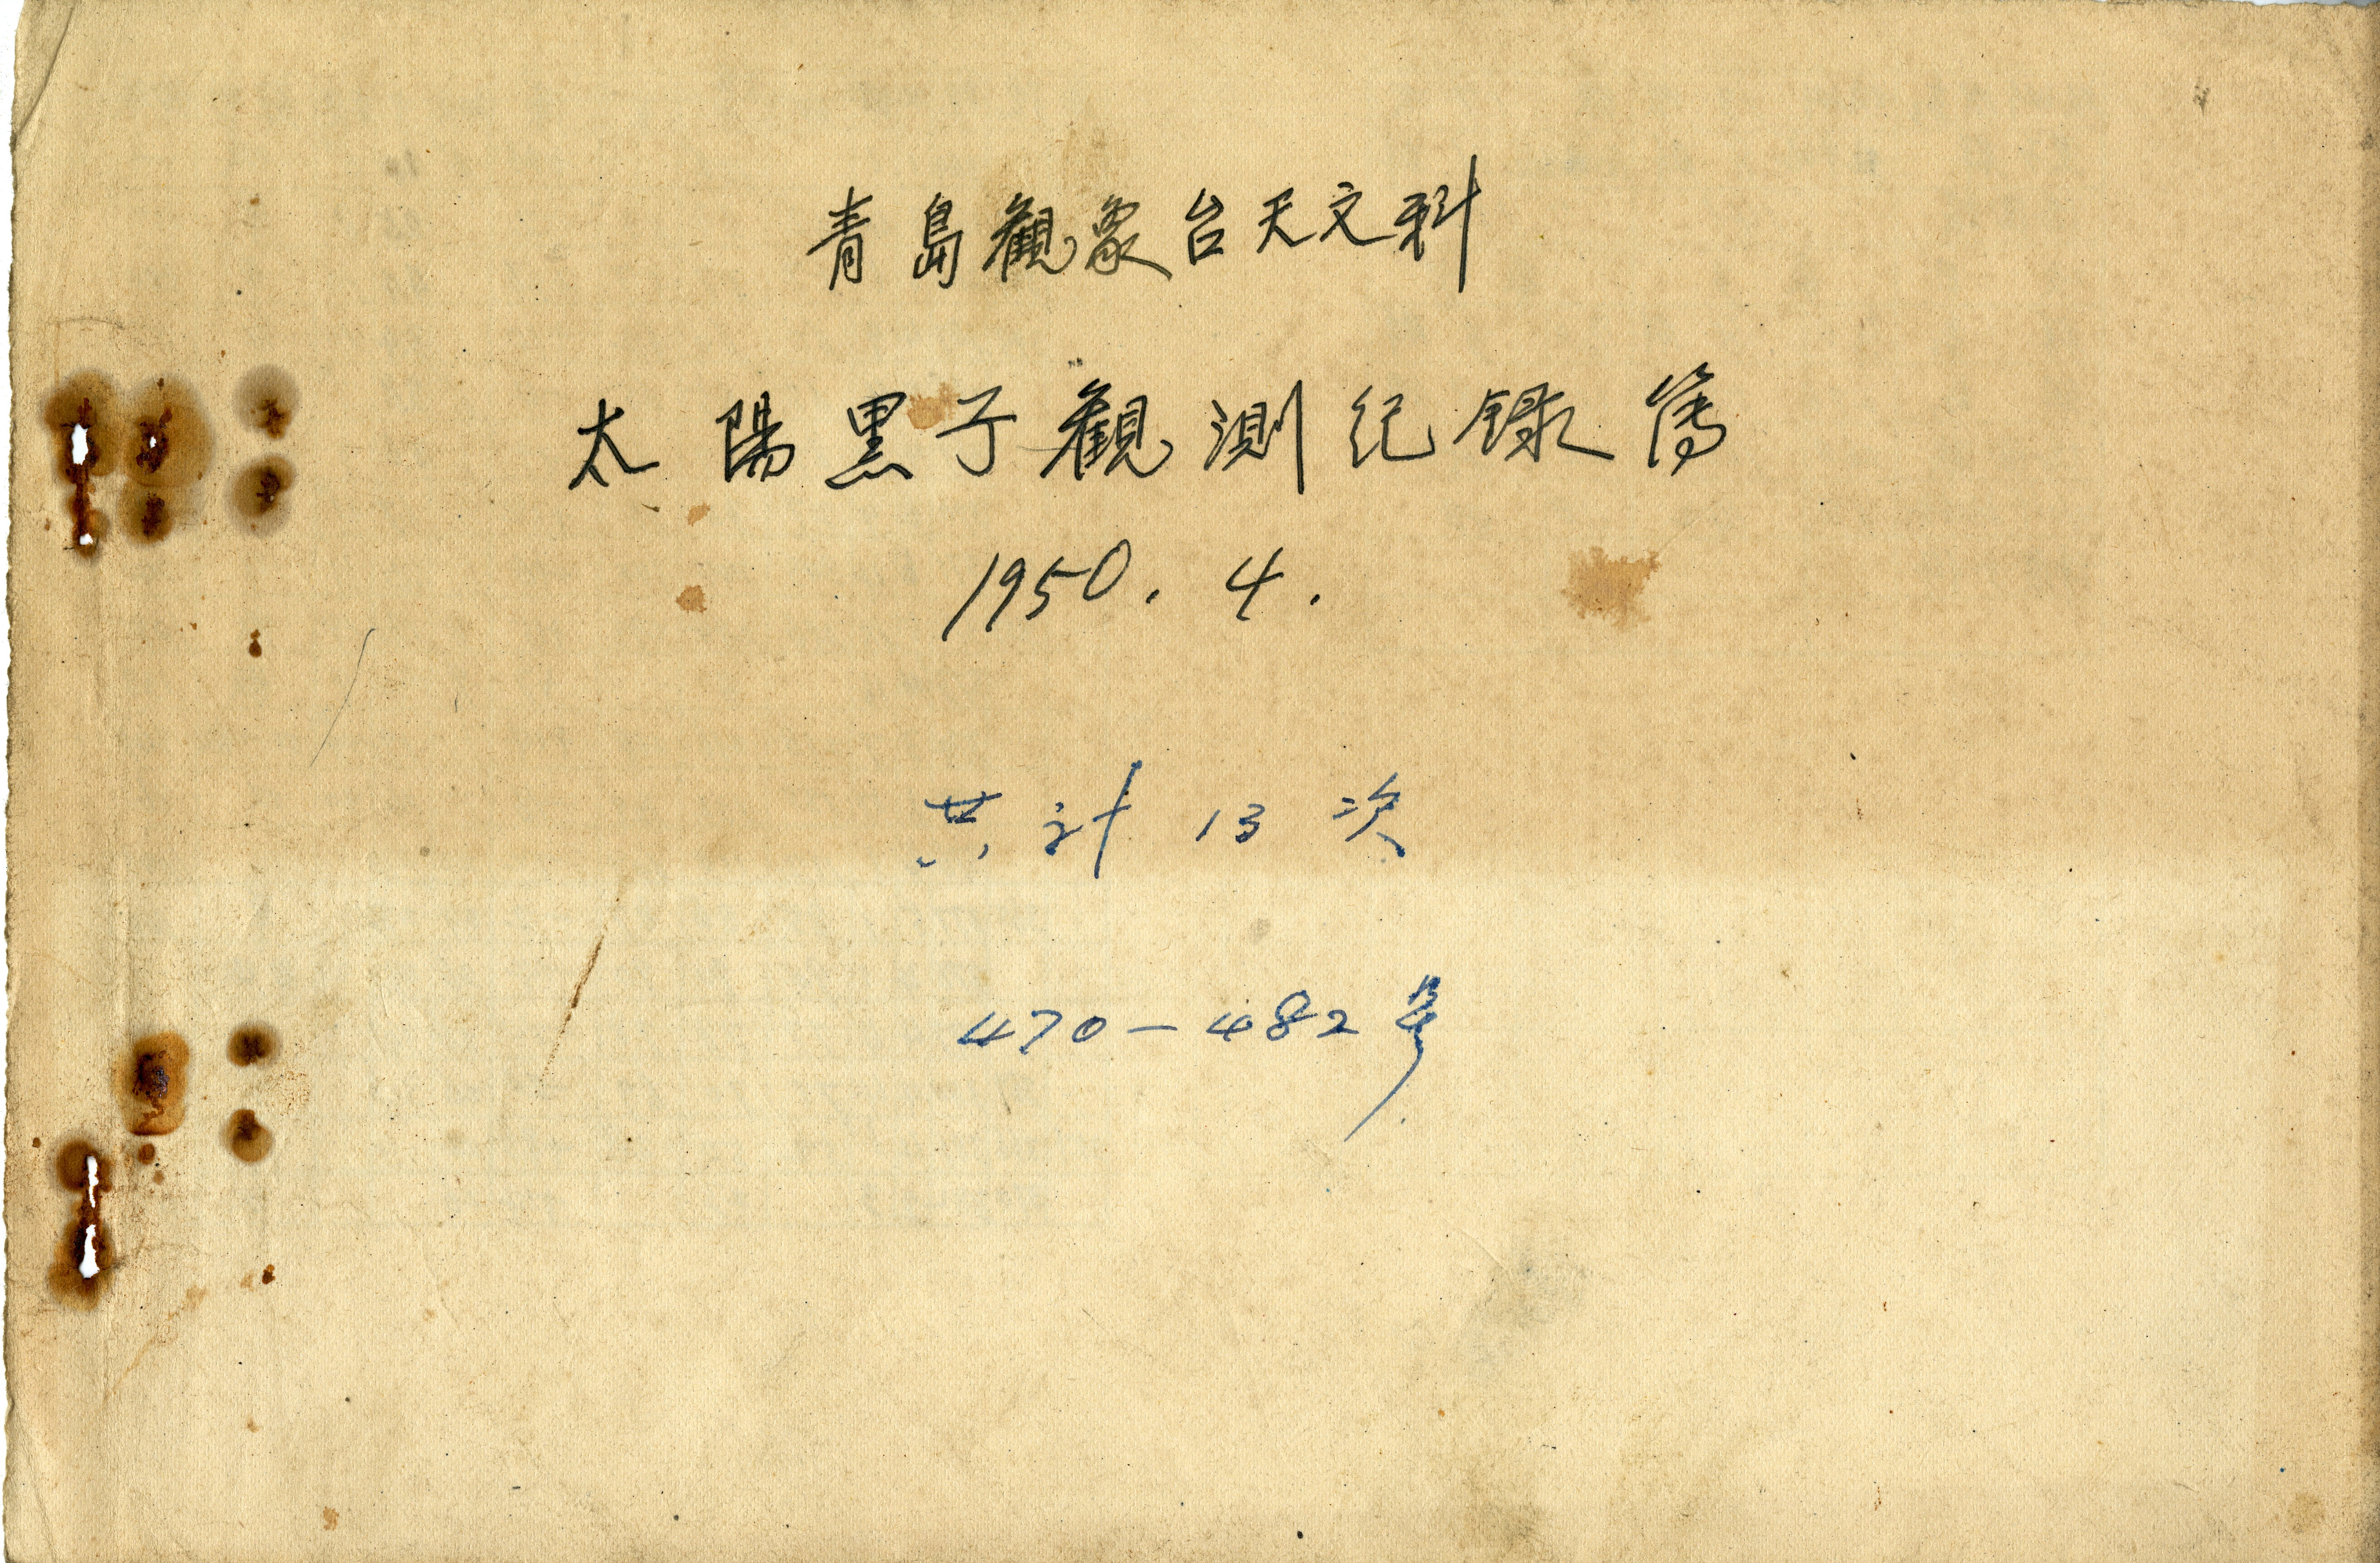 青島觀象台天文科
太陽黑子觀測紀錄簿
1950. 4.
共計 13 次
470-482號